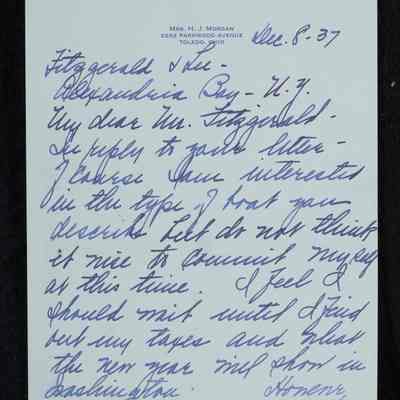 Mrs. H. J. Morgan
Parkwood Avenue
Toledo, Ohio
Dec. 8-37
Fitzgerald & Lee -
Alexandria Bay - N.Y.
My dear Mr. Fitzgerald -
In reply to your letter -
Of course I am interested
in the type of boat you
describe but do not think
it wise to commit myself
at this time. I feel I
should wait until I find
out my taxes and what
the new year will show in
Washington. However,